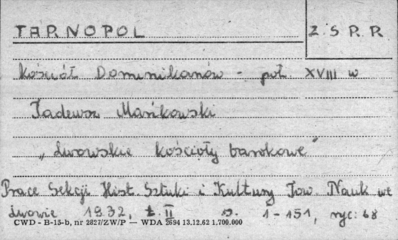 TARNOPOL
Z.S.R.R
Kościół Dominikanów - poł XVIII w
Tadeusz Mańkowski
„Lwowskie kościoły barokowe"
Prace Sekcji Hist. Sztuki i Kultury Tow. Nauk we
Lwowie 1932, t. II s. 1-151, ryc: 68
CWD - B-15-b, nr 2827/ZW/P — WDA 2694 13.12.62 1,700,000